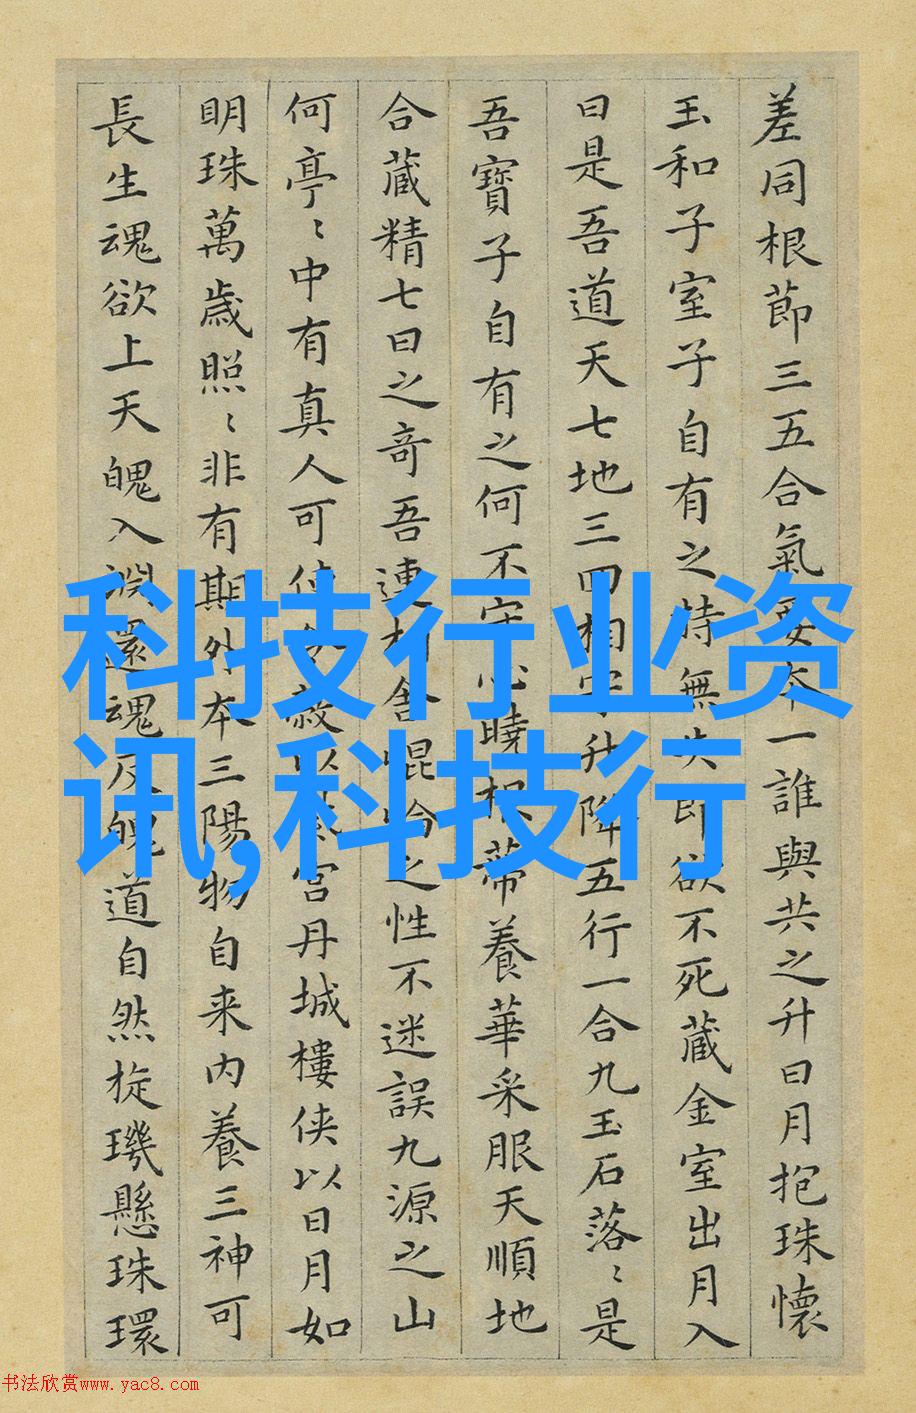 差同根節三五合氣要本一誰與共之升日月抱珠懷
玉和子室子自有之持無失即欲不死藏金室出月入
日是吾道天七地三四相守升降五行一合九玉石落〻是
吾寶子自有之何不守心曉根蒂養華采服天順地
合藏精七日之奇吾連相舍崐崘之性不迷誤九源之山
何亭〻中有真人可使蔽以宮丹城樓侠以日月如
明珠萬歲照〻非有期外本三陽物自来内養三神可
長生魂欲上天魄入淵還魂反魄道自然旋璣懸珠環
科技行业资
讯,科技行
书法欣赏www.yac8.com